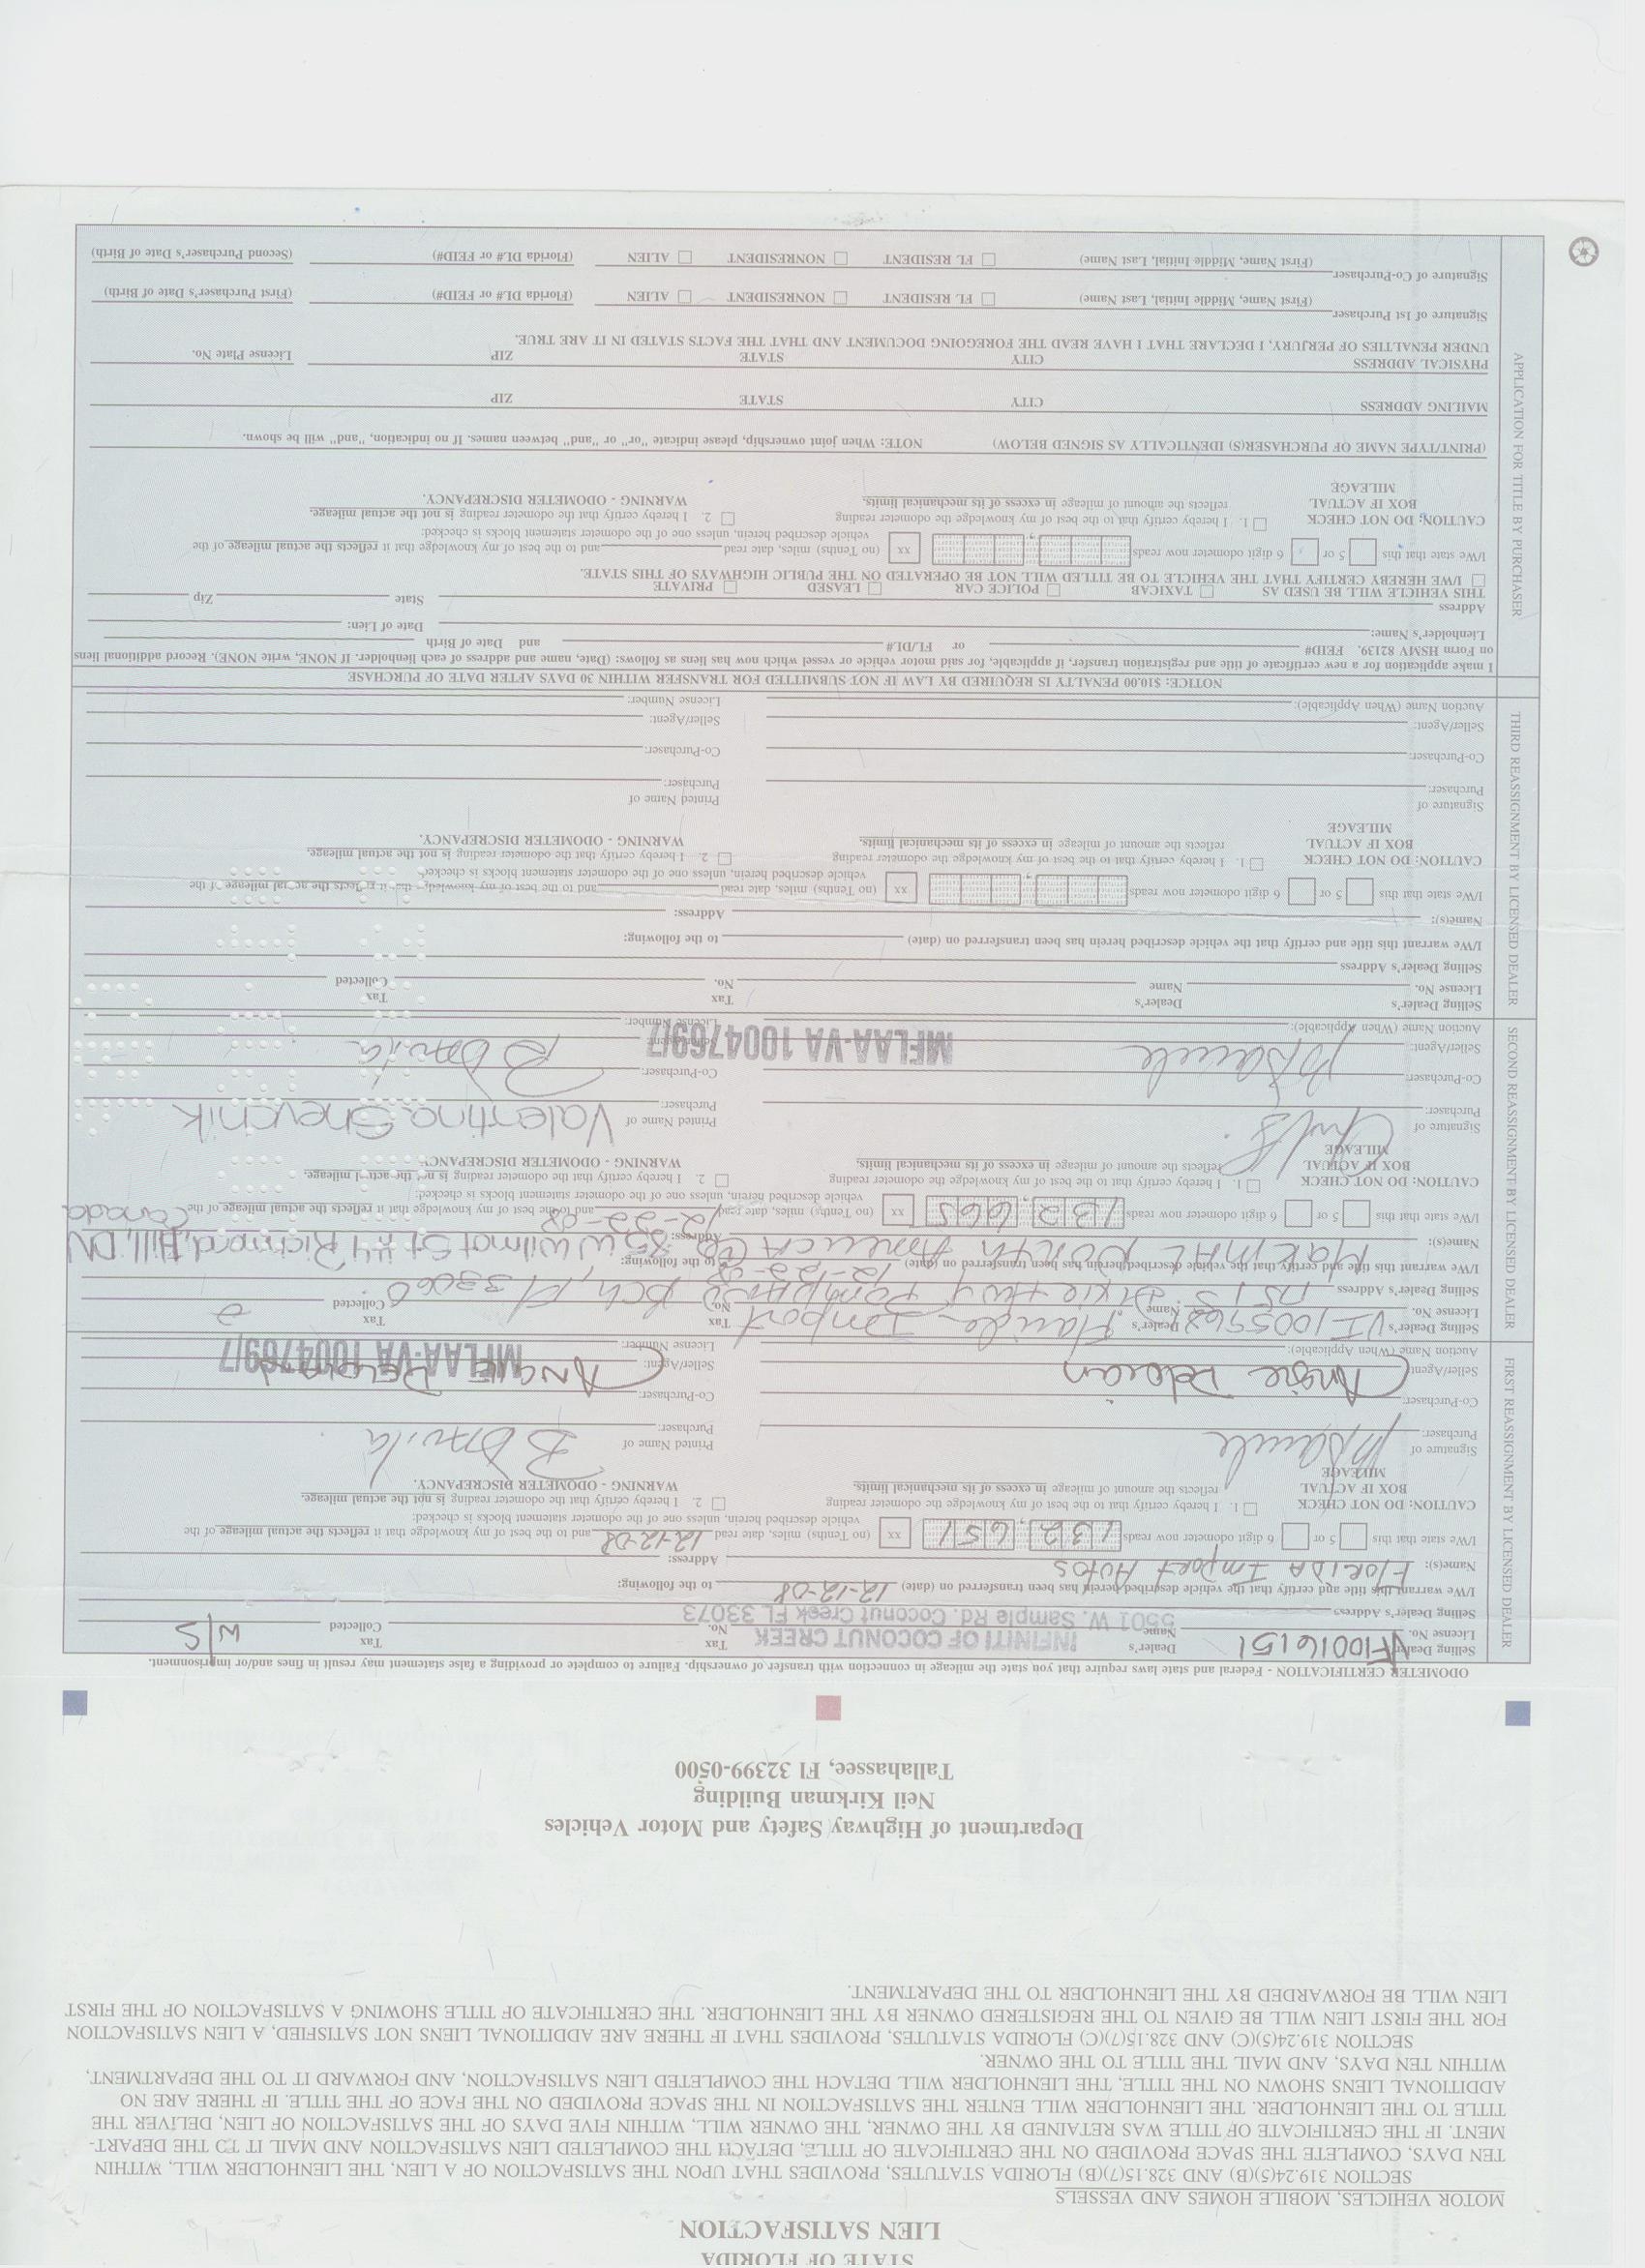 STATE OF FLORIDA
LIEN SATISFACTION
MOTOR VEHICLES, MOBILE HOMES AND VESSELS
SECTION 319.24(5)(B) AND 328.15(7)(B) FLORIDA STATUTES, PROVIDES THAT UPON THE SATISFACTION OF A LIEN, THE LIENHOLDER WILL, WITHIN
TEN DAYS, COMPLETE THE SPACE PROVIDED ON THE CERTIFICATE OF TITLE, DETACH THE COMPLETED LIEN SATISFACTION AND MAIL IT TO THE DEPART-
MENT. IF THE CERTIFICATE OF TITLE WAS RETAINED BY THE OWNER, THE OWNER WILL, WITHIN FIVE DAYS OF THE SATISFACTION OF LIEN, DELIVER THE
TITLE TO THE LIENHOLDER. THE LIENHOLDER WILL ENTER THE SATISFACTION IN THE SPACE PROVIDED ON THE FACE OF THE TITLE. IF THERE ARE NO
ADDITIONAL LIENS SHOWN ON THE TITLE, THE LIENHOLDER WILL DETACH THE COMPLETED LIEN SATISFACTION, AND FORWARD IT TO THE DEPARTMENT,
WITHIN TEN DAYS, AND MAIL THE TITLE TO THE OWNER.
SECTION 319.24(5)(C) AND 328.15(7)(C) FLORIDA STATUTES, PROVIDES THAT IF THERE ARE ADDITIONAL LIENS NOT SATISFIED, A LIEN SATISFACTION
FOR THE FIRST LIEN WILL BE GIVEN TO THE REGISTERED OWNER BY THE LIENHOLDER. THE CERTIFICATE OF TITLE SHOWING A SATISFACTION OF THE FIRST
LIEN WILL BE FORWARDED BY THE LIENHOLDER TO THE DEPARTMENT.
Department of Highway Safety and Motor Vehicles
Neil Kirkman Building
Tallahassee, Fl 32399-0500
ODOMETER CERTIFICATION - Federal and state laws require that you state the mileage in connection with transfer of ownership. Failure to complete or providing a false statement may result in fines and/or imprisonment.
FIRST REASSIGNMENT BY LICENSED DEALER
Selling Dealer's License No. VF10016151 Dealer's Name INFINITI OF COCONUT CREEK Tax No. Tax Collected W/S
Selling Dealer's Address 5501 W. Sample Rd. Coconut Creek FL 33073
I/We warrant this title and certify that the vehicle described herein has been transferred on (date) 12-12-08 to the following:
Name(s): FLORIDA IMPORT AUTOS Address:
I/We state that this 5 or 6 digit odometer now reads 132,651 xx (no Tenths) miles, date read 12-12-08 and to the best of my knowledge that it reflects the actual mileage of the
vehicle described herein, unless one of the odometer statement blocks is checked:
CAUTION: DO NOT CHECK BOX IF ACTUAL MILEAGE
1. I hereby certify that to the best of my knowledge the odometer reading reflects the amount of mileage in excess of its mechanical limits.
2. I hereby certify that the odometer reading is not the actual mileage. WARNING - ODOMETER DISCREPANCY.
Signature of Purchaser: Printed Name of Purchaser: B Davila
Co-Purchaser: Co-Purchaser:
Seller/Agent: Angie Delcian Seller/Agent: ANGIE
Auction Name (When Applicable): License Number: MFLAA-VA 1004769/7
SECOND REASSIGNMENT BY LICENSED DEALER
Selling Dealer's License No. VI 1005568 Dealer's Name Florida Import Tax No. Tax Collected
Selling Dealer's Address 1151 S. Dixie Hwy Pompano Bch, Fl 33060
I/We warrant this title and certify that the vehicle described herein has been transferred on (date) 12-22-08 to the following:
Name(s): MAKIMAL NORTH AMERICA Address: 85 W Wilmot St #4 Richmond, Hill, ON Canada
I/We state that this 5 or 6 digit odometer now reads 132,665 xx (no Tenths) miles, date read 12-22-08 and to the best of my knowledge that it reflects the actual mileage of the
vehicle described herein, unless one of the odometer statement blocks is checked:
CAUTION: DO NOT CHECK BOX IF ACTUAL MILEAGE
1. I hereby certify that to the best of my knowledge the odometer reading reflects the amount of mileage in excess of its mechanical limits.
2. I hereby certify that the odometer reading is not the actual mileage. WARNING - ODOMETER DISCREPANCY.
Signature of Purchaser: Printed Name of Purchaser: Valentina Shevchik
Co-Purchaser: Co-Purchaser:
Seller/Agent: Seller/Agent: B Davila
Auction Name (When Applicable): License Number: MFLAA-VA 1004769/7
THIRD REASSIGNMENT BY LICENSED DEALER
Selling Dealer's License No. Dealer's Name Tax No. Tax Collected
Selling Dealer's Address
I/We warrant this title and certify that the vehicle described herein has been transferred on (date) to the following:
Name(s): Address:
I/We state that this 5 or 6 digit odometer now reads xx (no Tenths) miles, date read and to the best of my knowledge that it reflects the actual mileage of the
vehicle described herein, unless one of the odometer statement blocks is checked:
CAUTION: DO NOT CHECK BOX IF ACTUAL MILEAGE
1. I hereby certify that to the best of my knowledge the odometer reading reflects the amount of mileage in excess of its mechanical limits.
2. I hereby certify that the odometer reading is not the actual mileage. WARNING - ODOMETER DISCREPANCY.
Signature of Purchaser: Printed Name of Purchaser:
Co-Purchaser: Co-Purchaser:
Seller/Agent: Seller/Agent:
Auction Name (When Applicable): License Number:
NOTICE: $10.00 PENALTY IS REQUIRED BY LAW IF NOT SUBMITTED FOR TRANSFER WITHIN 30 DAYS AFTER DATE OF PURCHASE
APPLICATION FOR TITLE BY PURCHASER
I make application for a new certificate of title and registration transfer, if applicable, for said motor vehicle or vessel which now has liens as follows: (Date, name and address of each lienholder. If NONE, write NONE). Record additional liens
on Form HSMV 82139. FEID# or FL/DL# and Date of Birth
Lienholder's Name: Date of Lien:
Address State Zip
THIS VEHICLE WILL BE USED AS TAXICAB POLICE CAR LEASED PRIVATE
I/WE HEREBY CERTIFY THAT THE VEHICLE TO BE TITLED WILL NOT BE OPERATED ON THE PUBLIC HIGHWAYS OF THIS STATE.
I/We state that this 5 or 6 digit odometer now reads xx (no Tenths) miles, date read and to the best of my knowledge that it reflects the actual mileage of the
vehicle described herein, unless one of the odometer statement blocks is checked:
CAUTION: DO NOT CHECK BOX IF ACTUAL MILEAGE
1. I hereby certify that to the best of my knowledge the odometer reading reflects the amount of mileage in excess of its mechanical limits.
2. I hereby certify that the odometer reading is not the actual mileage. WARNING - ODOMETER DISCREPANCY.
(PRINT/TYPE NAME OF PURCHASER(S) IDENTICALLY AS SIGNED BELOW) NOTE: When joint ownership, please indicate "or" or "and" between names. If no indication, "and" will be shown.
MAILING ADDRESS CITY STATE ZIP
PHYSICAL ADDRESS CITY STATE ZIP License Plate No.
UNDER PENALTIES OF PERJURY, I DECLARE THAT I HAVE READ THE FOREGOING DOCUMENT AND THAT THE FACTS STATED IN IT ARE TRUE.
Signature of 1st Purchaser
(First Name, Middle Initial, Last Name) FL RESIDENT NONRESIDENT ALIEN (Florida DL# or FEID#) (First Purchaser's Date of Birth)
Signature of Co-Purchaser
(First Name, Middle Initial, Last Name) FL RESIDENT NONRESIDENT ALIEN (Florida DL# or FEID#) (Second Purchaser's Date of Birth)